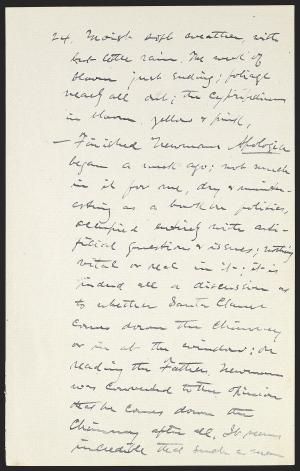 24. Moist soft weather, with
but little rain. The week of
bloom just ending; foliage
nearly all out; the cypripediums
in bloom, yellow & pink,
— Finished Newmans Apologia
began a week ago; not much
in it for me, dry &
as a book on policies,
occupied entirely with arti-
ficial questions & issues; nothing
vital or real in it; it is
indeed all a discussion as
to whether Santa Claus
comes down the Chimney
or in at the window; on
reading the Fathers, Newman
was converted to the opinion
that he comes down the
Chimney after all. It seems
incredible that such a man